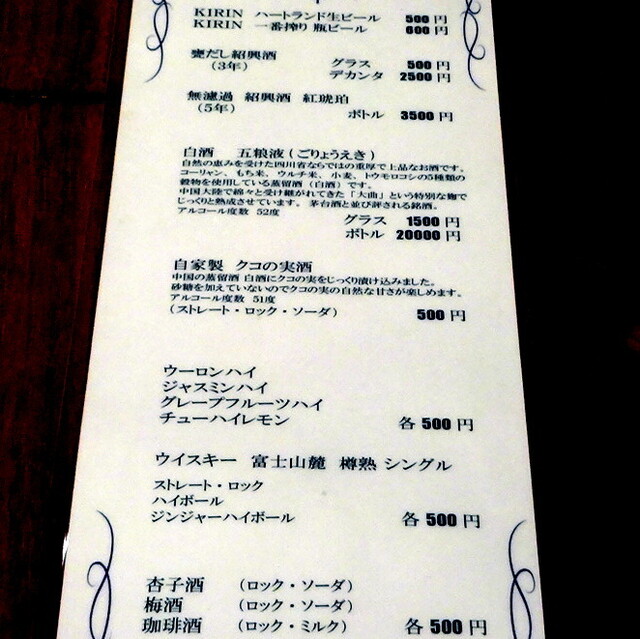 KIRIN ハートランド生ビール 500 円
KIRIN 一番搾り 瓶ビール 600 円
甕だし紹興酒
(3年) グラス 500 円
デカンタ 2500 円
無濾過 紹興酒 紅琥珀
(5年) ボトル 3500 円
白酒 五粮液(ごりょうえき)
自然の恵みを受けた四川省ならではの重厚で上品なお酒です。
コーリャン、もち米、ウルチ米、小麦、トウモロコシの5種類の
穀物を使用している蒸留酒(白酒)です。
中国大陸で綿々と受け継がれてきた「大曲」という特別な麹で
じっくりと熟成させています。茅台酒と並び評される銘酒。
アルコール度数 52度
グラス 1500 円
ボトル 20000 円
自家製 クコの実酒
中国の蒸留酒 白酒にクコの実をじっくり漬け込みました。
砂糖を加えていないのでクコの実の自然な甘さが楽しめます。
アルコール度数 51度
(ストレート・ロック・ソーダ) 500 円
ウーロンハイ
ジャスミンハイ
グレープフルーツハイ
チューハイレモン 各 500 円
ウイスキー 富士山麓 樽熟 シングル
ストレート・ロック
ハイボール
ジンジャーハイボール 各 500 円
杏子酒 (ロック・ソーダ)
梅酒 (ロック・ソーダ)
珈琲酒 (ロック・ミルク) 各 500 円